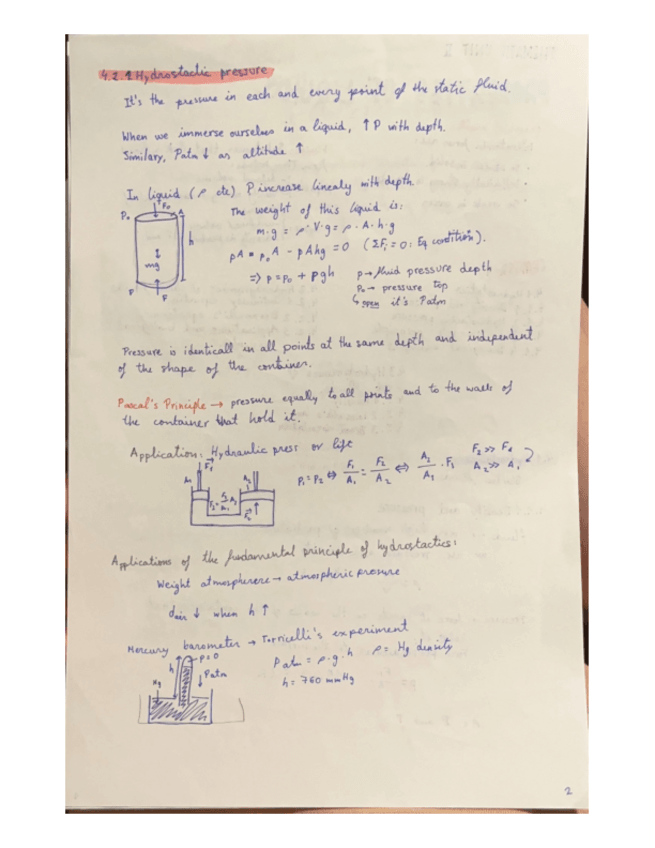 4.2.1 Hydrostactic pressure
It's the pressure in each and every point of the static fluid.
When we immerse ourselves in a liquid, ↑ P with depth.
Similary, Patm ↓ as altitude ↑
In liquid (ρ cte) P increase linealy with depth.
The weight of this liquid is:
m·g = ρ·V·g = ρ·A·h·g
pA = p₀A - ρAhg = 0 (ΣFi = 0: Eq condition).
⇒ p = p₀ + ρgh
p → fluid pressure depth
p₀ → pressure top
↳ open it's Patm
P₀ F₀ A
h
mg
P F
Pressure is identicall in all points at the same depth and independent
of the shape of the container.
Pascal's Principle → pressure equally to all points and to the walls of
the container that hold it.
Application: Hydraulic press or lift
P₁ = P₂ ⇔ F₁/A₁ = F₂/A₂ ⇔ A₂/A₁ · F₁ F₂ >> F₁
A₂ >> A₁
F₁
A₁ A₂
Applications of the fundamental principle of hydrostactics:
Weight atmospherere → atmospheric presure
dair ↓ when h ↑
Mercury barometer → Torricelli's experiment
Patm = ρ·g·h ρ = Hg density
h = 760 mmHg
p=0
h
Hg ↓ Patm
2